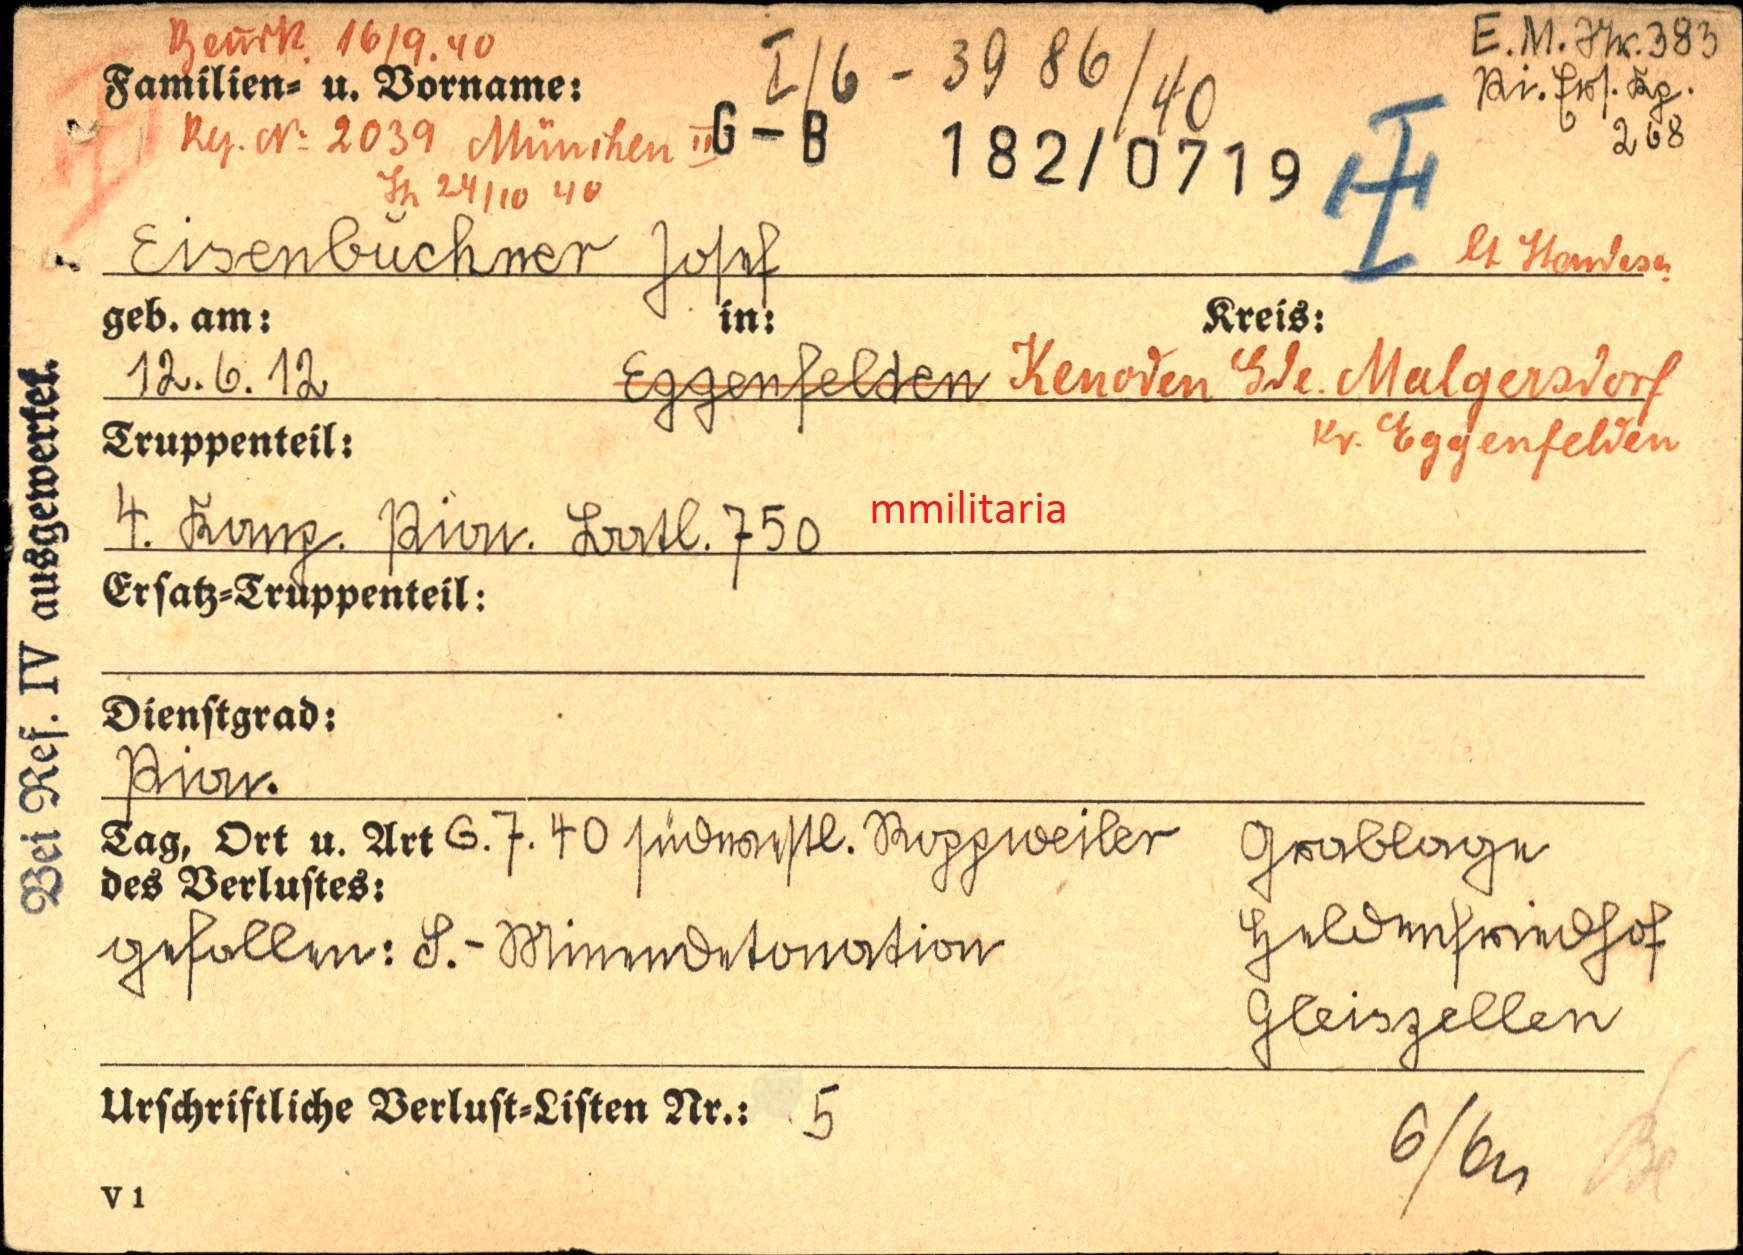 Beurk. 16/9.40
I/6 - 3986/40
E.M. Nr. 383
Pi. Ers. Kp.
268
Familien- u. Vorname:
Reg. Nr. 2039 München III
24/10 40
G-B 182/0719
Eisenbüchner Josef
lt Standesa.
geb. am: in: Kreis:
12.6.12 Eggenfelden Kenoden Gde. Malgersdorf
Kr. Eggenfelden
Truppenteil:
4. Komp. Pion. Batl. 750
mmilitaria
Ersatz-Truppenteil:
Dienstgrad:
Pion.
Tag, Ort u. Art 6.7.40 südwestl. Roppweiler
des Verlustes:
gefallen: S.-Minendetonation
Grablage
Heldenfriedhof
Gleiszellen
Urschriftliche Verlust-Listen Nr.: 5
V 1
Bei Ref. IV ausgewertet.